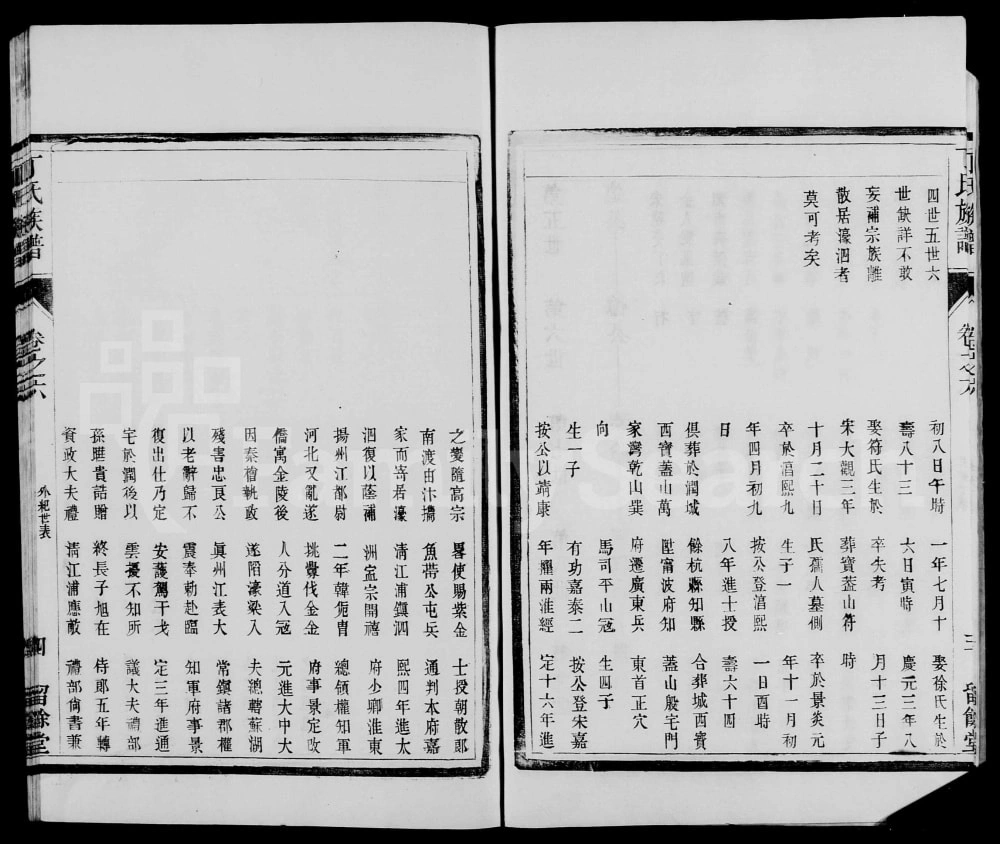 丁氏族譜
卷之六
三
留餘堂
四世五世六
世缺詳不敢
妄補宗族離
散居濠泗者
莫可考矣
初八日午時
壽八十三
娶符氏生於
宋大觀三年
十月二十日
卒於淳熙九
年四月初九
日
俱葬於潤城
西寶蓋山萬
家灣乾山巽
向
生一子
按公以靖康
一年七月十
六日寅時
卒失考
葬寶蓋山符
氏孺人墓側
生子一
按公登淳熙
八年進士授
餘杭縣知縣
陞甯波府知
府遷廣東兵
馬司平山冠
有功嘉泰二
年擢兩淮經
娶徐氏生於
慶元三年八
月十三日子
時
卒於景炎元
年十一月初
一日酉時
壽六十四
合葬城西寶
蓋山殷宅門
東首正穴
生四子
按公登宋嘉
定十六年進
之變隨高宗
南渡由汴擕
家而寄居濠
泗復以蔭補
揚州江都尉
河北又亂遂
僑寓金陵後
因秦檜執政
殘害忠良公
以老辭歸不
復出仕乃定
宅於潤後以
孫䧺貴誥贈
資政大夫禮
畧使賜紫金
魚帶公屯兵
清江浦鎮泗
洲寍宗開禧
二年韓侂冑
挑釁伐金金
人分道入冠
遂陷濠梁入
眞州江表大
震奉勅赴臨
安護駕干戈
雲擾不知所
終長子旭在
清江浦應敵
士授朝散郎
通判本府嘉
熙四年進太
府少卿淮東
總領權知軍
府事景定改
元進大中大
夫總轄蘇湖
常鎮諸郡權
知軍府事景
定三年進通
議大夫禮部
侍郎五年轉
禮部尙書兼
丁氏族譜
卷之六
外紀世表
四
留餘堂